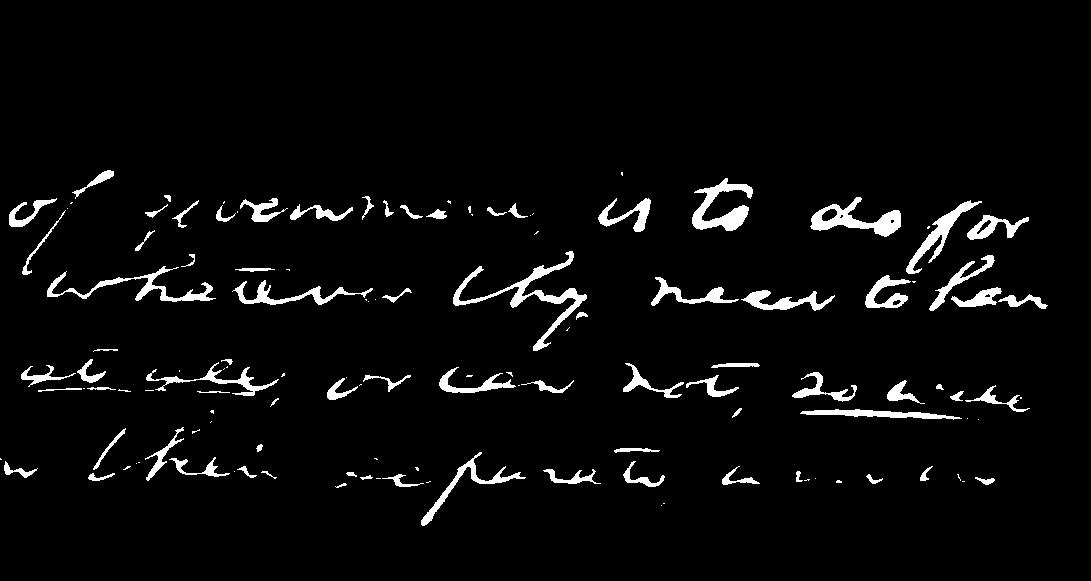 of government is to do for
whatever they need to have
at all, or can not, so well
their separate